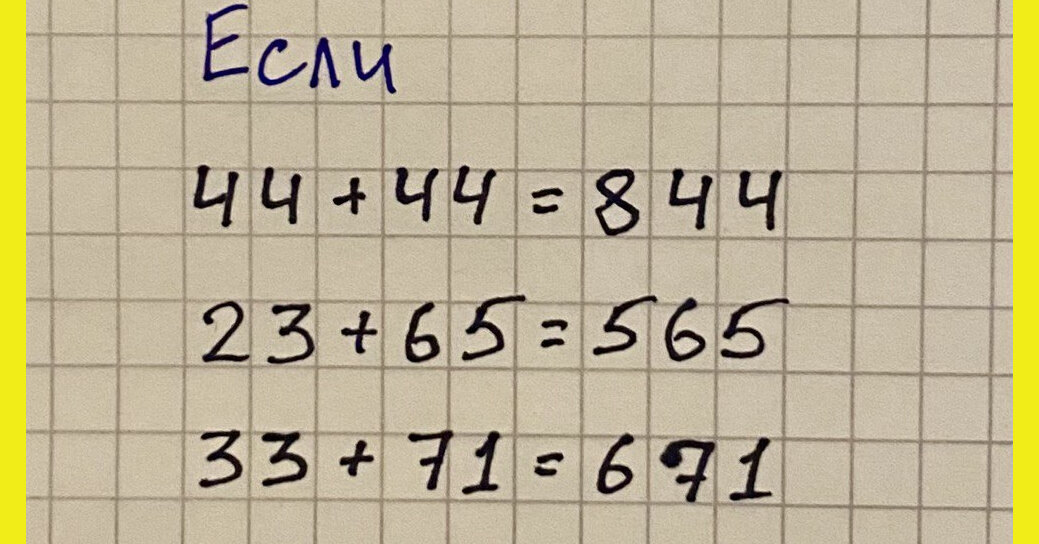 Если
44+44=844
23+65=565
33+71=671